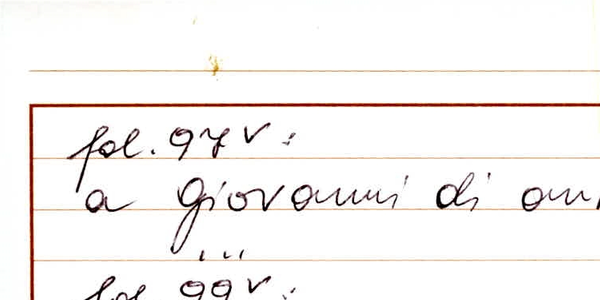 fol. 97v:
a giovanni di
...
fol. 99v: